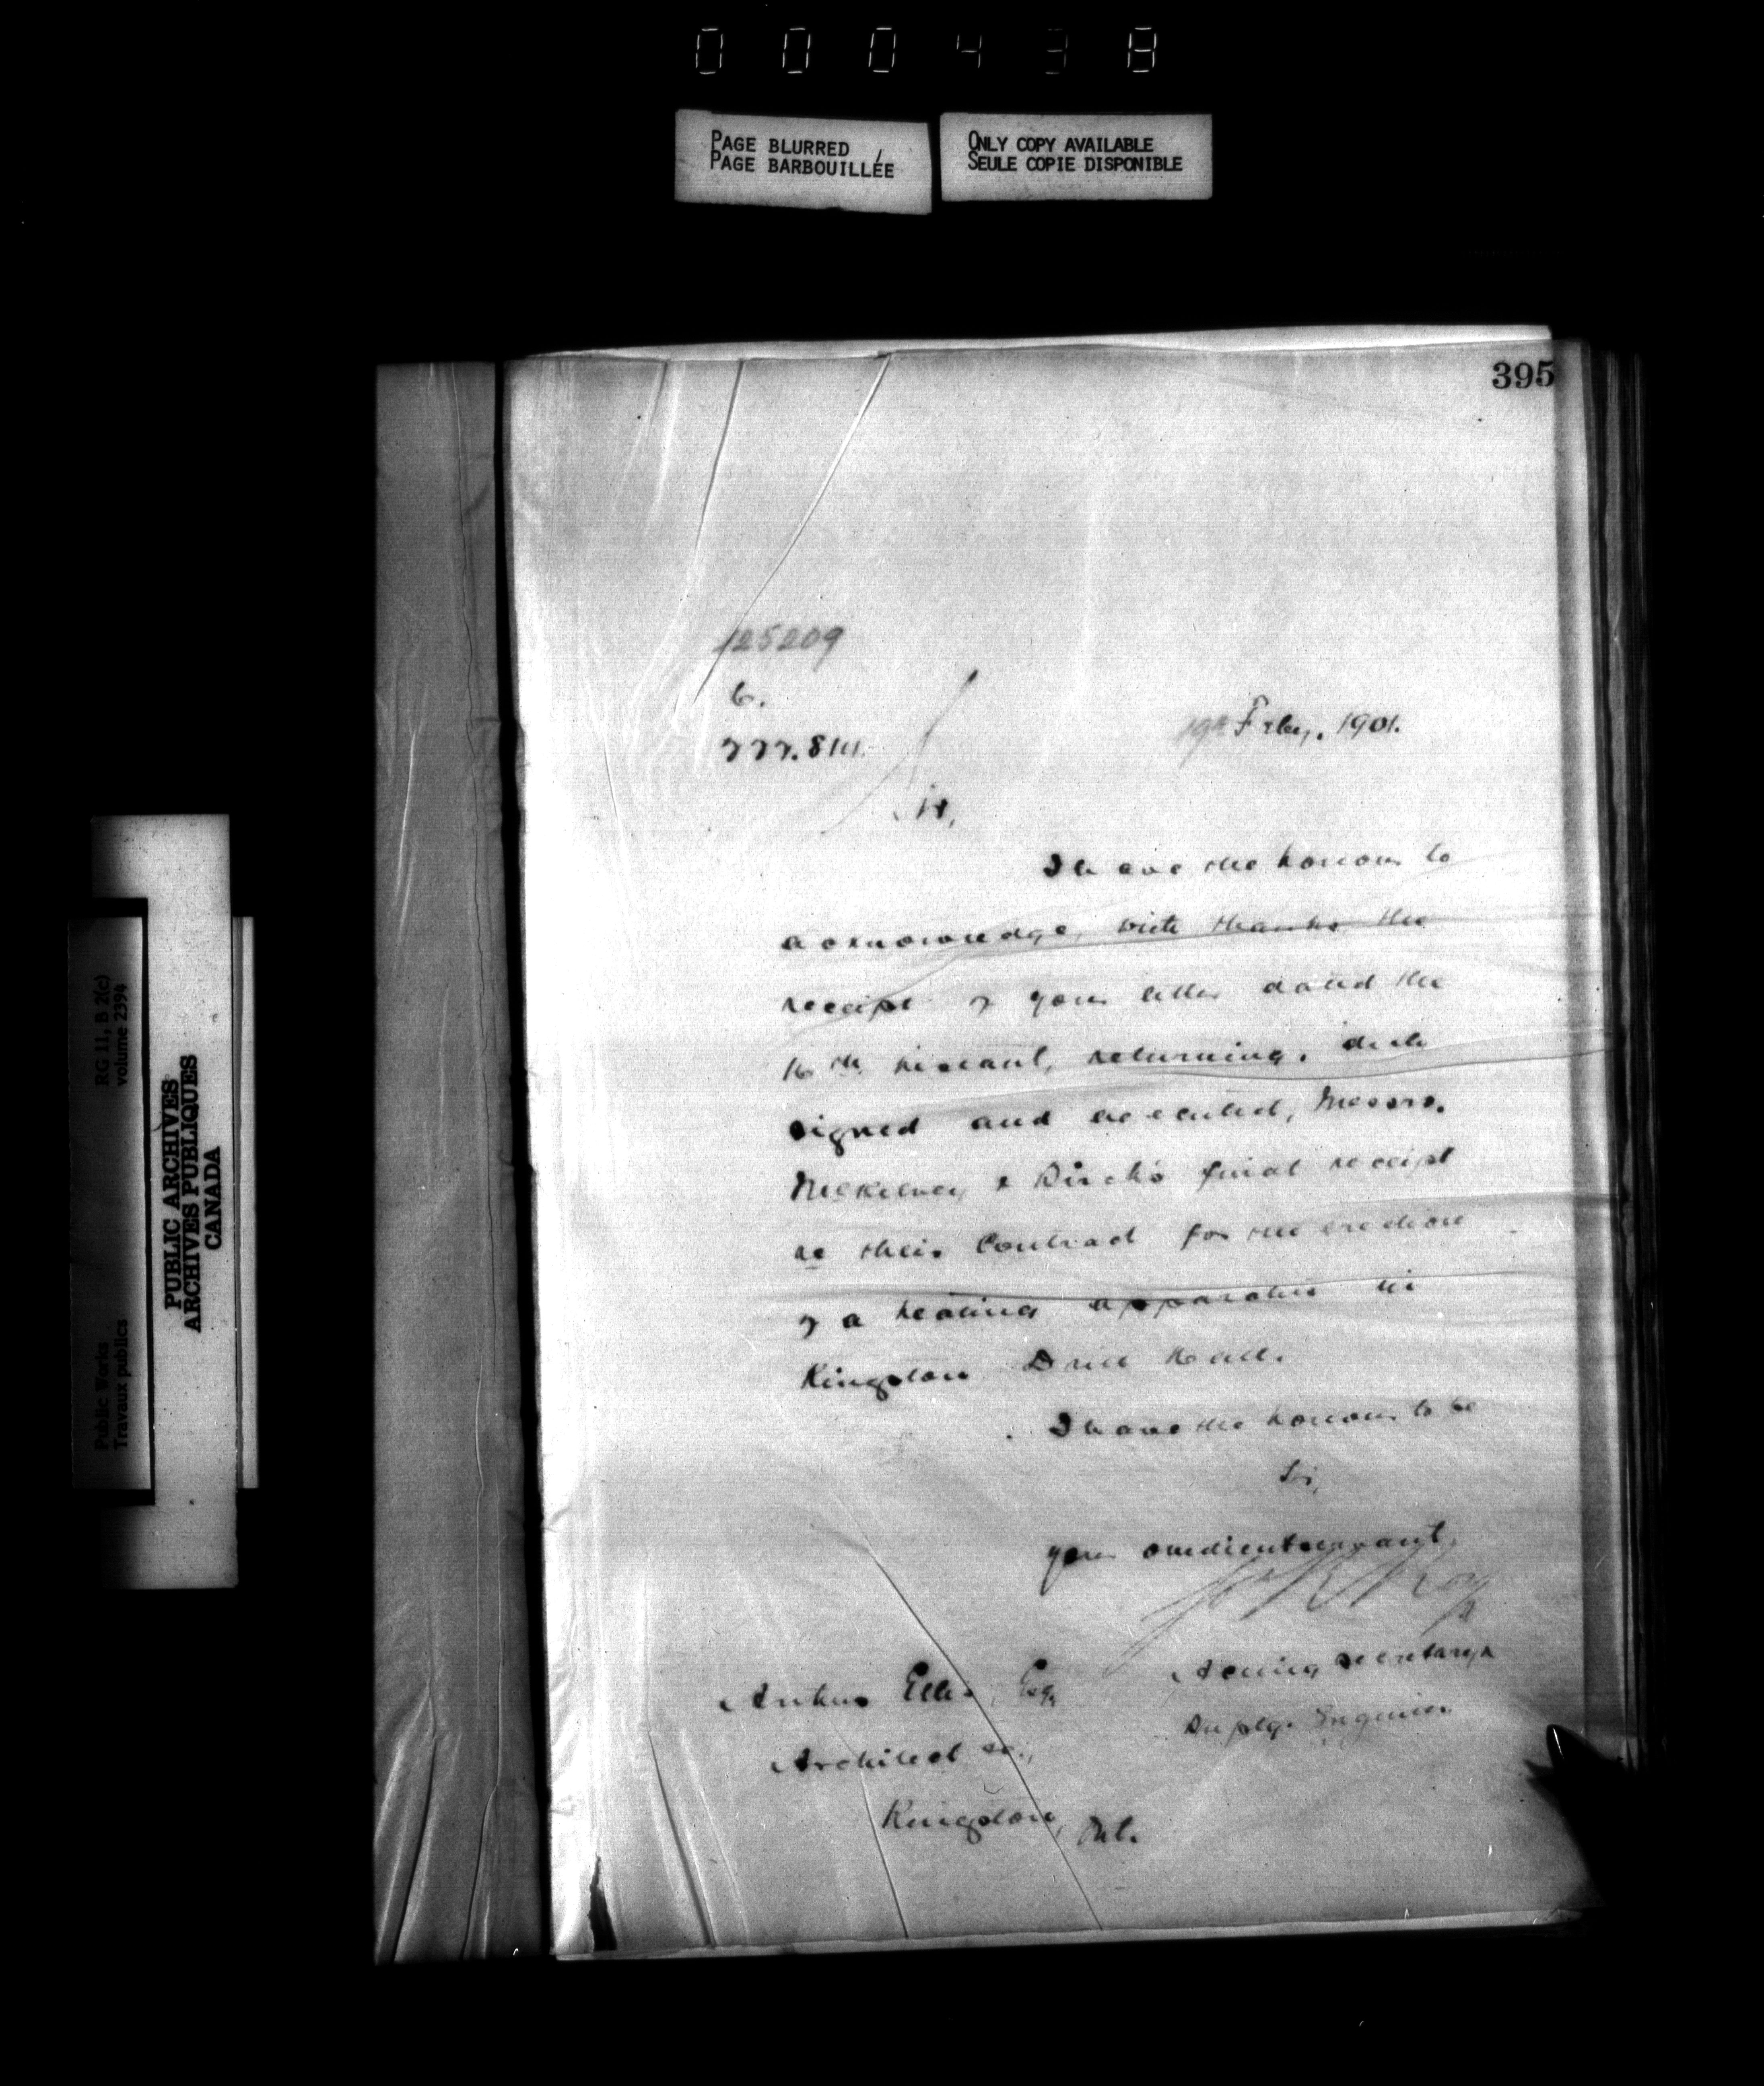 000438
PAGE BLURRED
PAGE BARBOUILLÉE
ONLY COPY AVAILABLE
SEULE COPIE DISPONIBLE
395
125209
6.
19th Feby. 1901.
Sir,
I have the honour to
acknowledge, with thanks the
receipt of your letter dated the
16th instant, returning, duly
signed and executed, Messrs.
McKelvey & Birch's final receipt
re their Contract for the erection
of a heating apparatus in
Kingston Drill Hall.
I have the honour to be
Sir,
your obedient servant,
Acting Secretary
Arthur Ellis, Esq,
Architect &c.,
Kingston, Ont.
RG 11, B 2(c)
volume 2394
Public Works
Travaux publics
PUBLIC ARCHIVES
ARCHIVES PUBLIQUES
CANADA